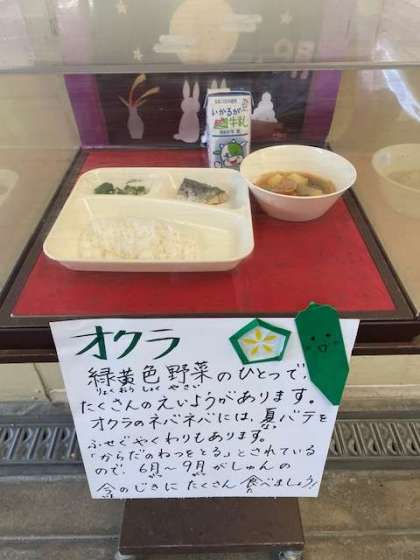 いかるが
牛乳
オクラ
緑黄色野菜のひとつで、
りょくおうしょくやさい
たくさんのえいようがあります。
オクラのネバネバには、夏バテを
ふせぐやくわりもあります。
「からだのねつをとる」とされている
ので、6月〜9月がしゅんの
今のじきにたくさん食べましょう!